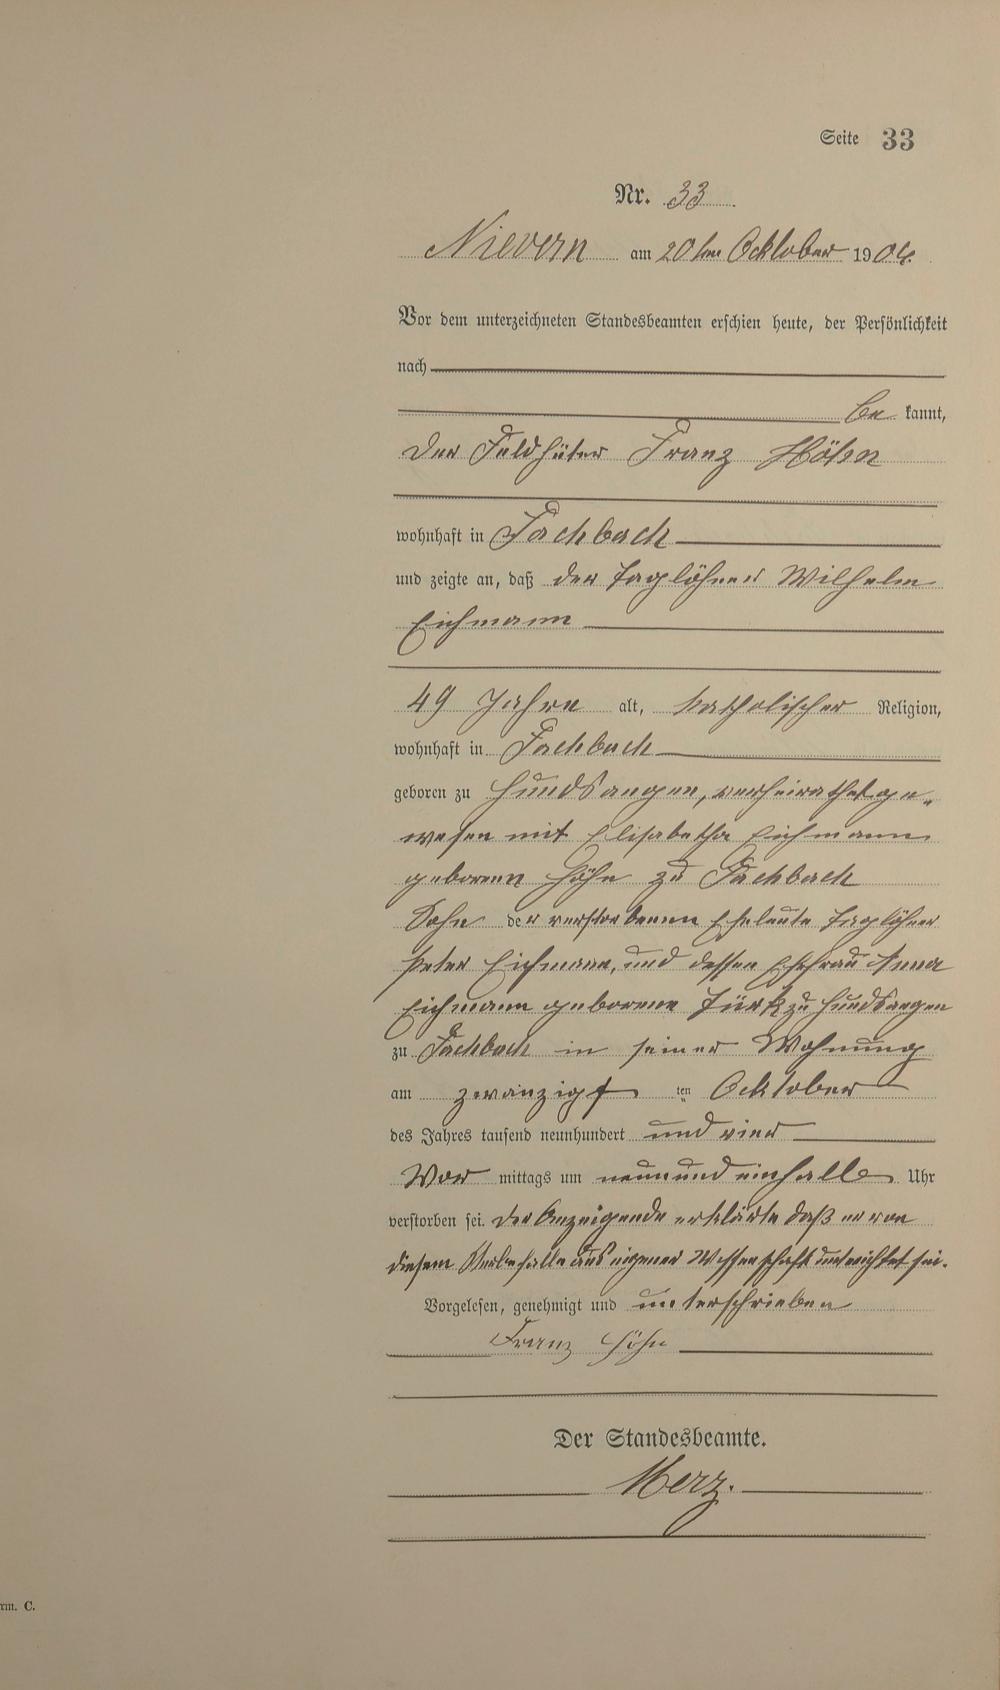 Seite 33
Nr. 33
Nievern am 20ten Ocktober 1904.
Vor dem unterzeichneten Standesbeamten erschien heute, der Persönlichkeit
nach
be kannt,
der Feldhüter Franz Höhn
wohnhaft in Fachbach
und zeigte an, daß der Taglöhner Wilhelm
Eichmann
49 Jahre alt, katholischer Religion,
wohnhaft in Fachbach
geboren zu Hundsangen, verheirathet ge„
wesen mit Elisabetha Eichmann
geborenen Höhn zu Fachbach
Sohn der verstorbenen Eheleute Taglöhner
Peter Eichmann, und dessen Ehefrau Anna
Eichmann geborene Türk zu Hundsangen
zu Fachbach in seiner Wohnung
am zwanzigsten Ocktober
des Jahres tausend neunhundert und vier
Vor mittags um neunundeinhalb Uhr
verstorben sei. Der Anzeigende erklärte daß er von
diesem Sterbefalle aus eigener Wissenschaft unterrichtet sei.
Vorgelesen, genehmigt und unterschrieben
Franz Höhn
Der Standesbeamte.
Merz.
rm. C.